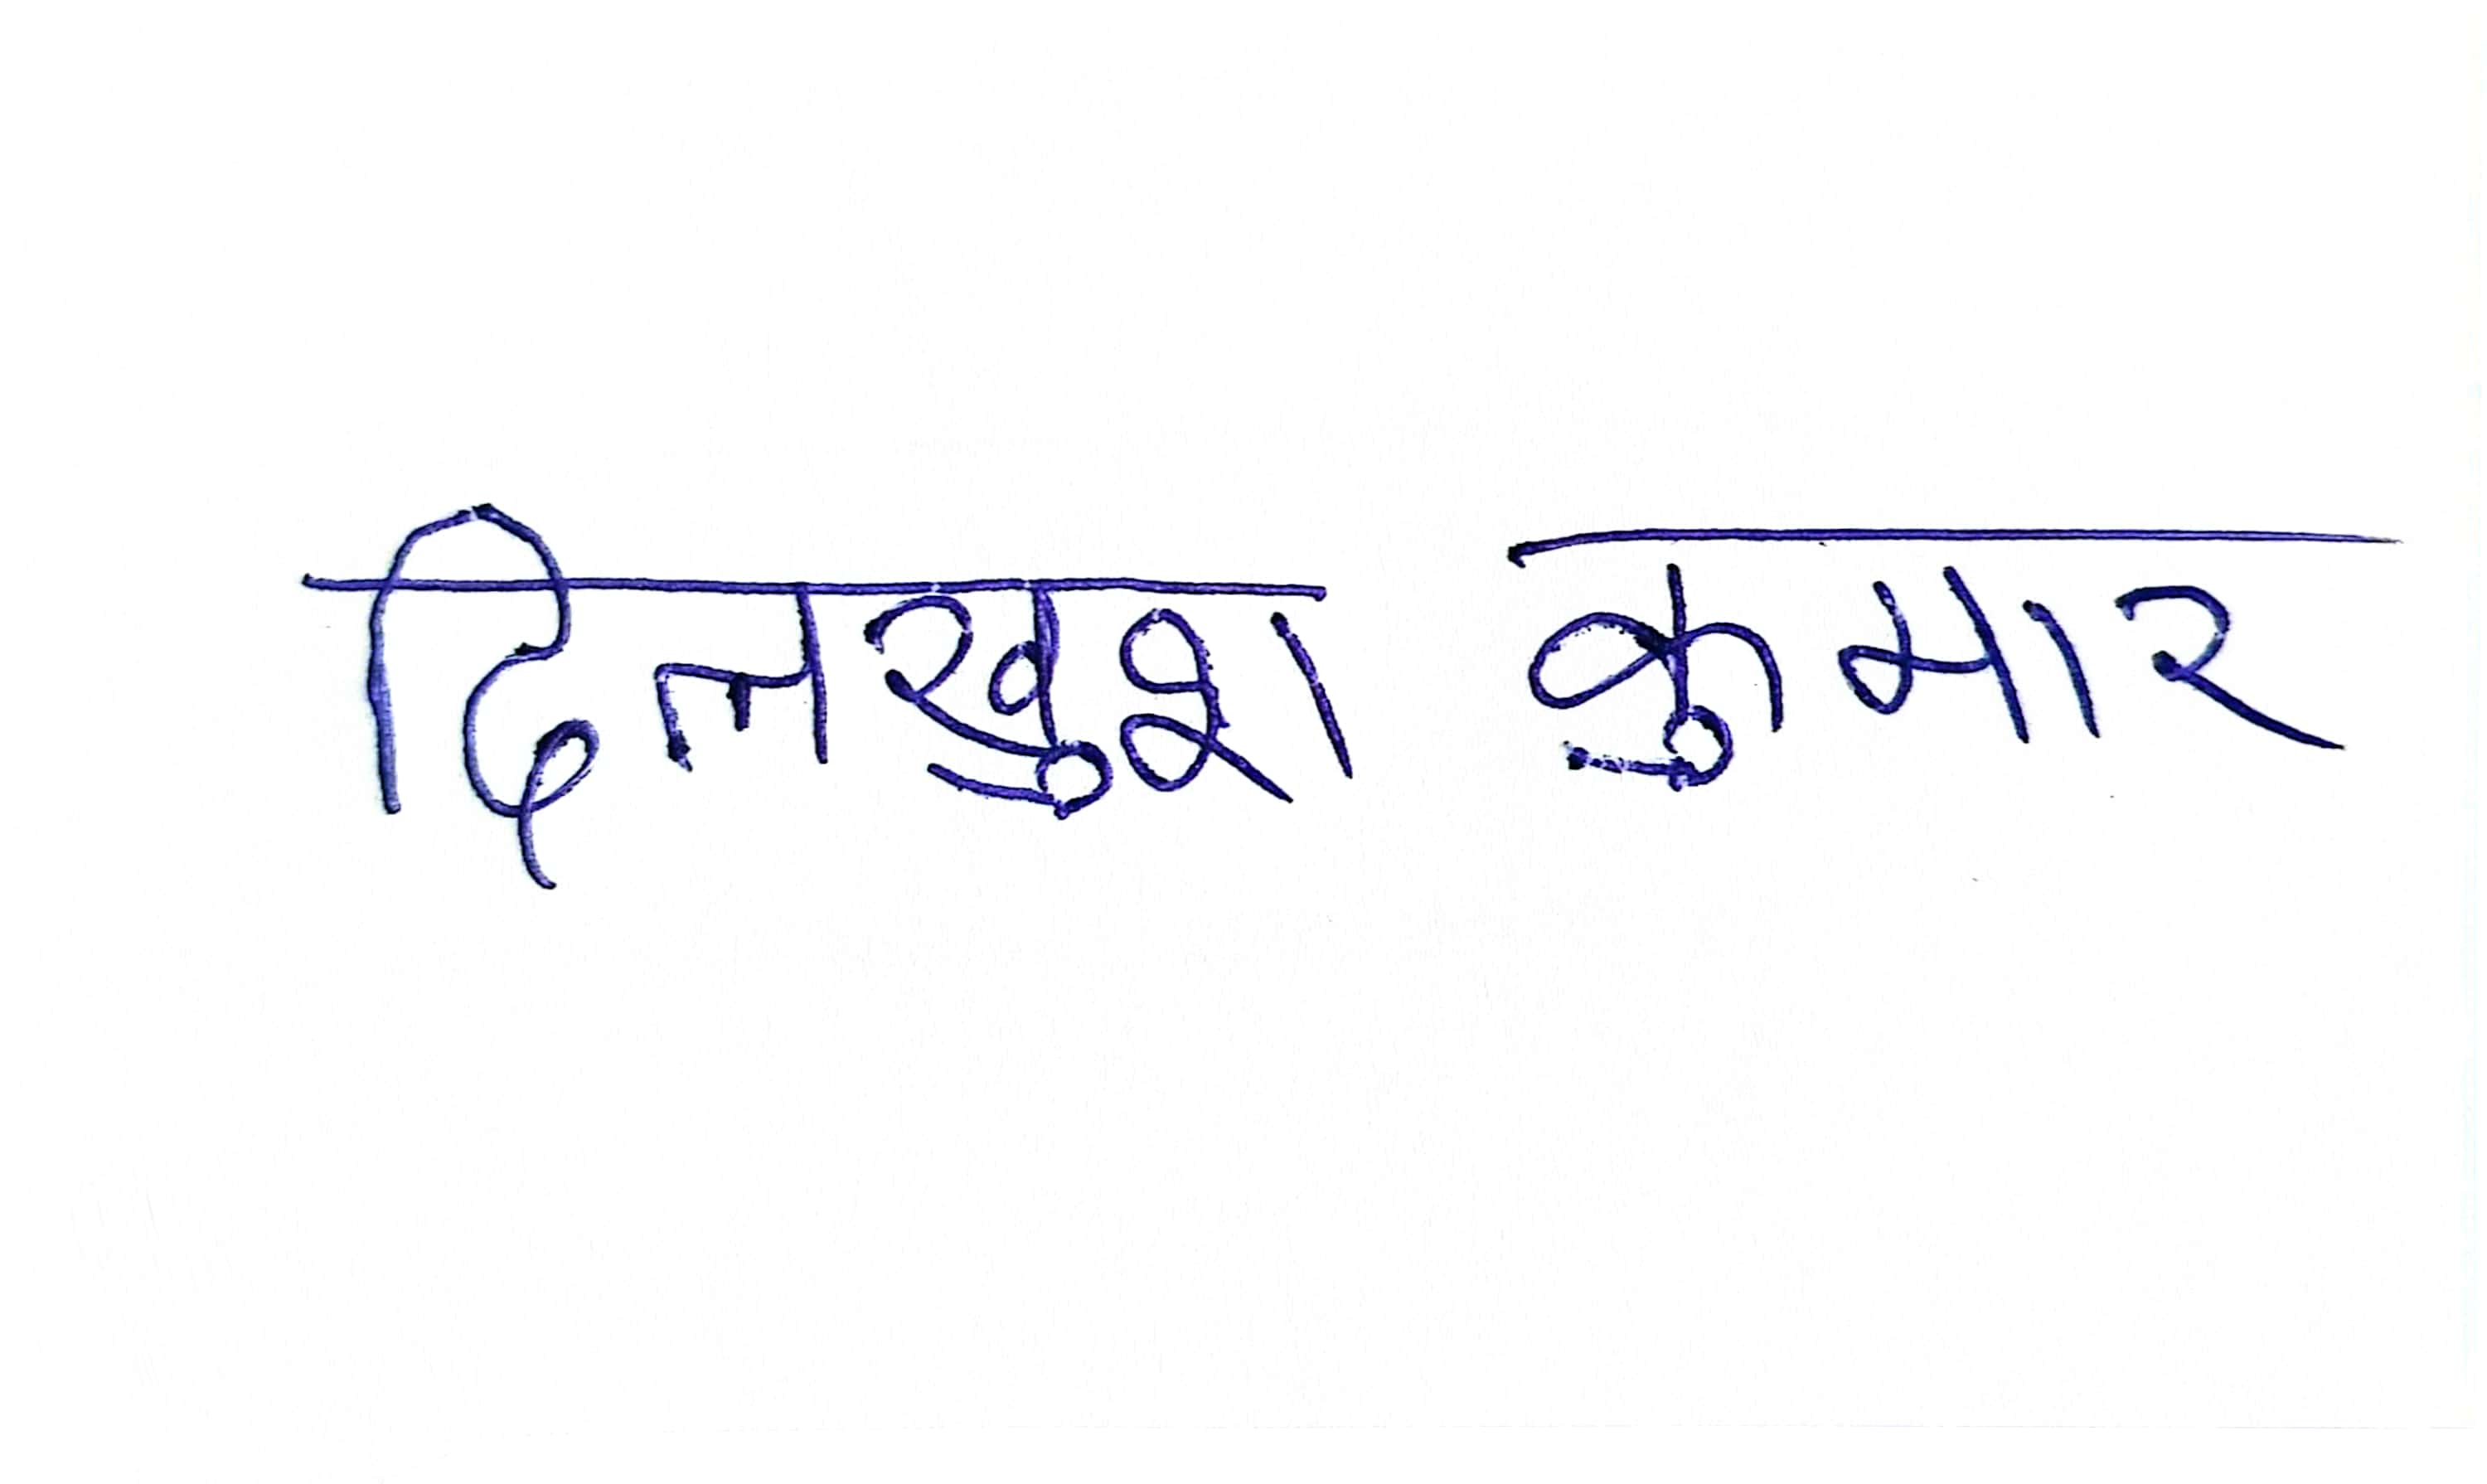 दिलखुश कुमार